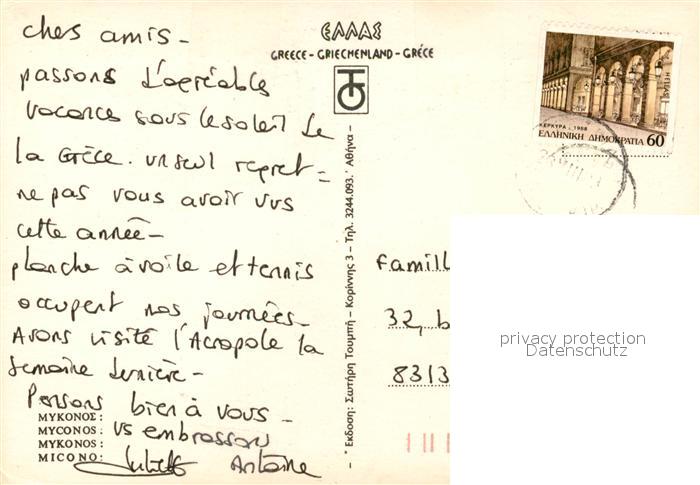 chers amis -
passons d'agréables
vacances sous le soleil de
la Grèce. un seul regret =
ne pas vous avoir vus
cette année -
planche à voile et tennis
occupent nos journées -
Avons visité l'Acropole la
semaine dernière -
Pensons bien à vous -
vs embrassons
Juliette Antoine
ΜΥΚΟΝΟΣ:
MYCONOS:
MYKONOS:
MICONO:
ΕΛΛΑΣ
GREECE - GRIECHENLAND - GRÉCE
* Εκδοση: Σωτήρη Τουμπή - Κορίννης 3 - Τηλ. 3244.093. ' Αθήνα -
ΚΕΡΚΥΡΑ, 1988
ΕΛΛΗΝΙΚΗ ΔΗΜΟΚΡΑΤΙΑ 60
Famill
32, b
8313
privacy protection
Datenschutz